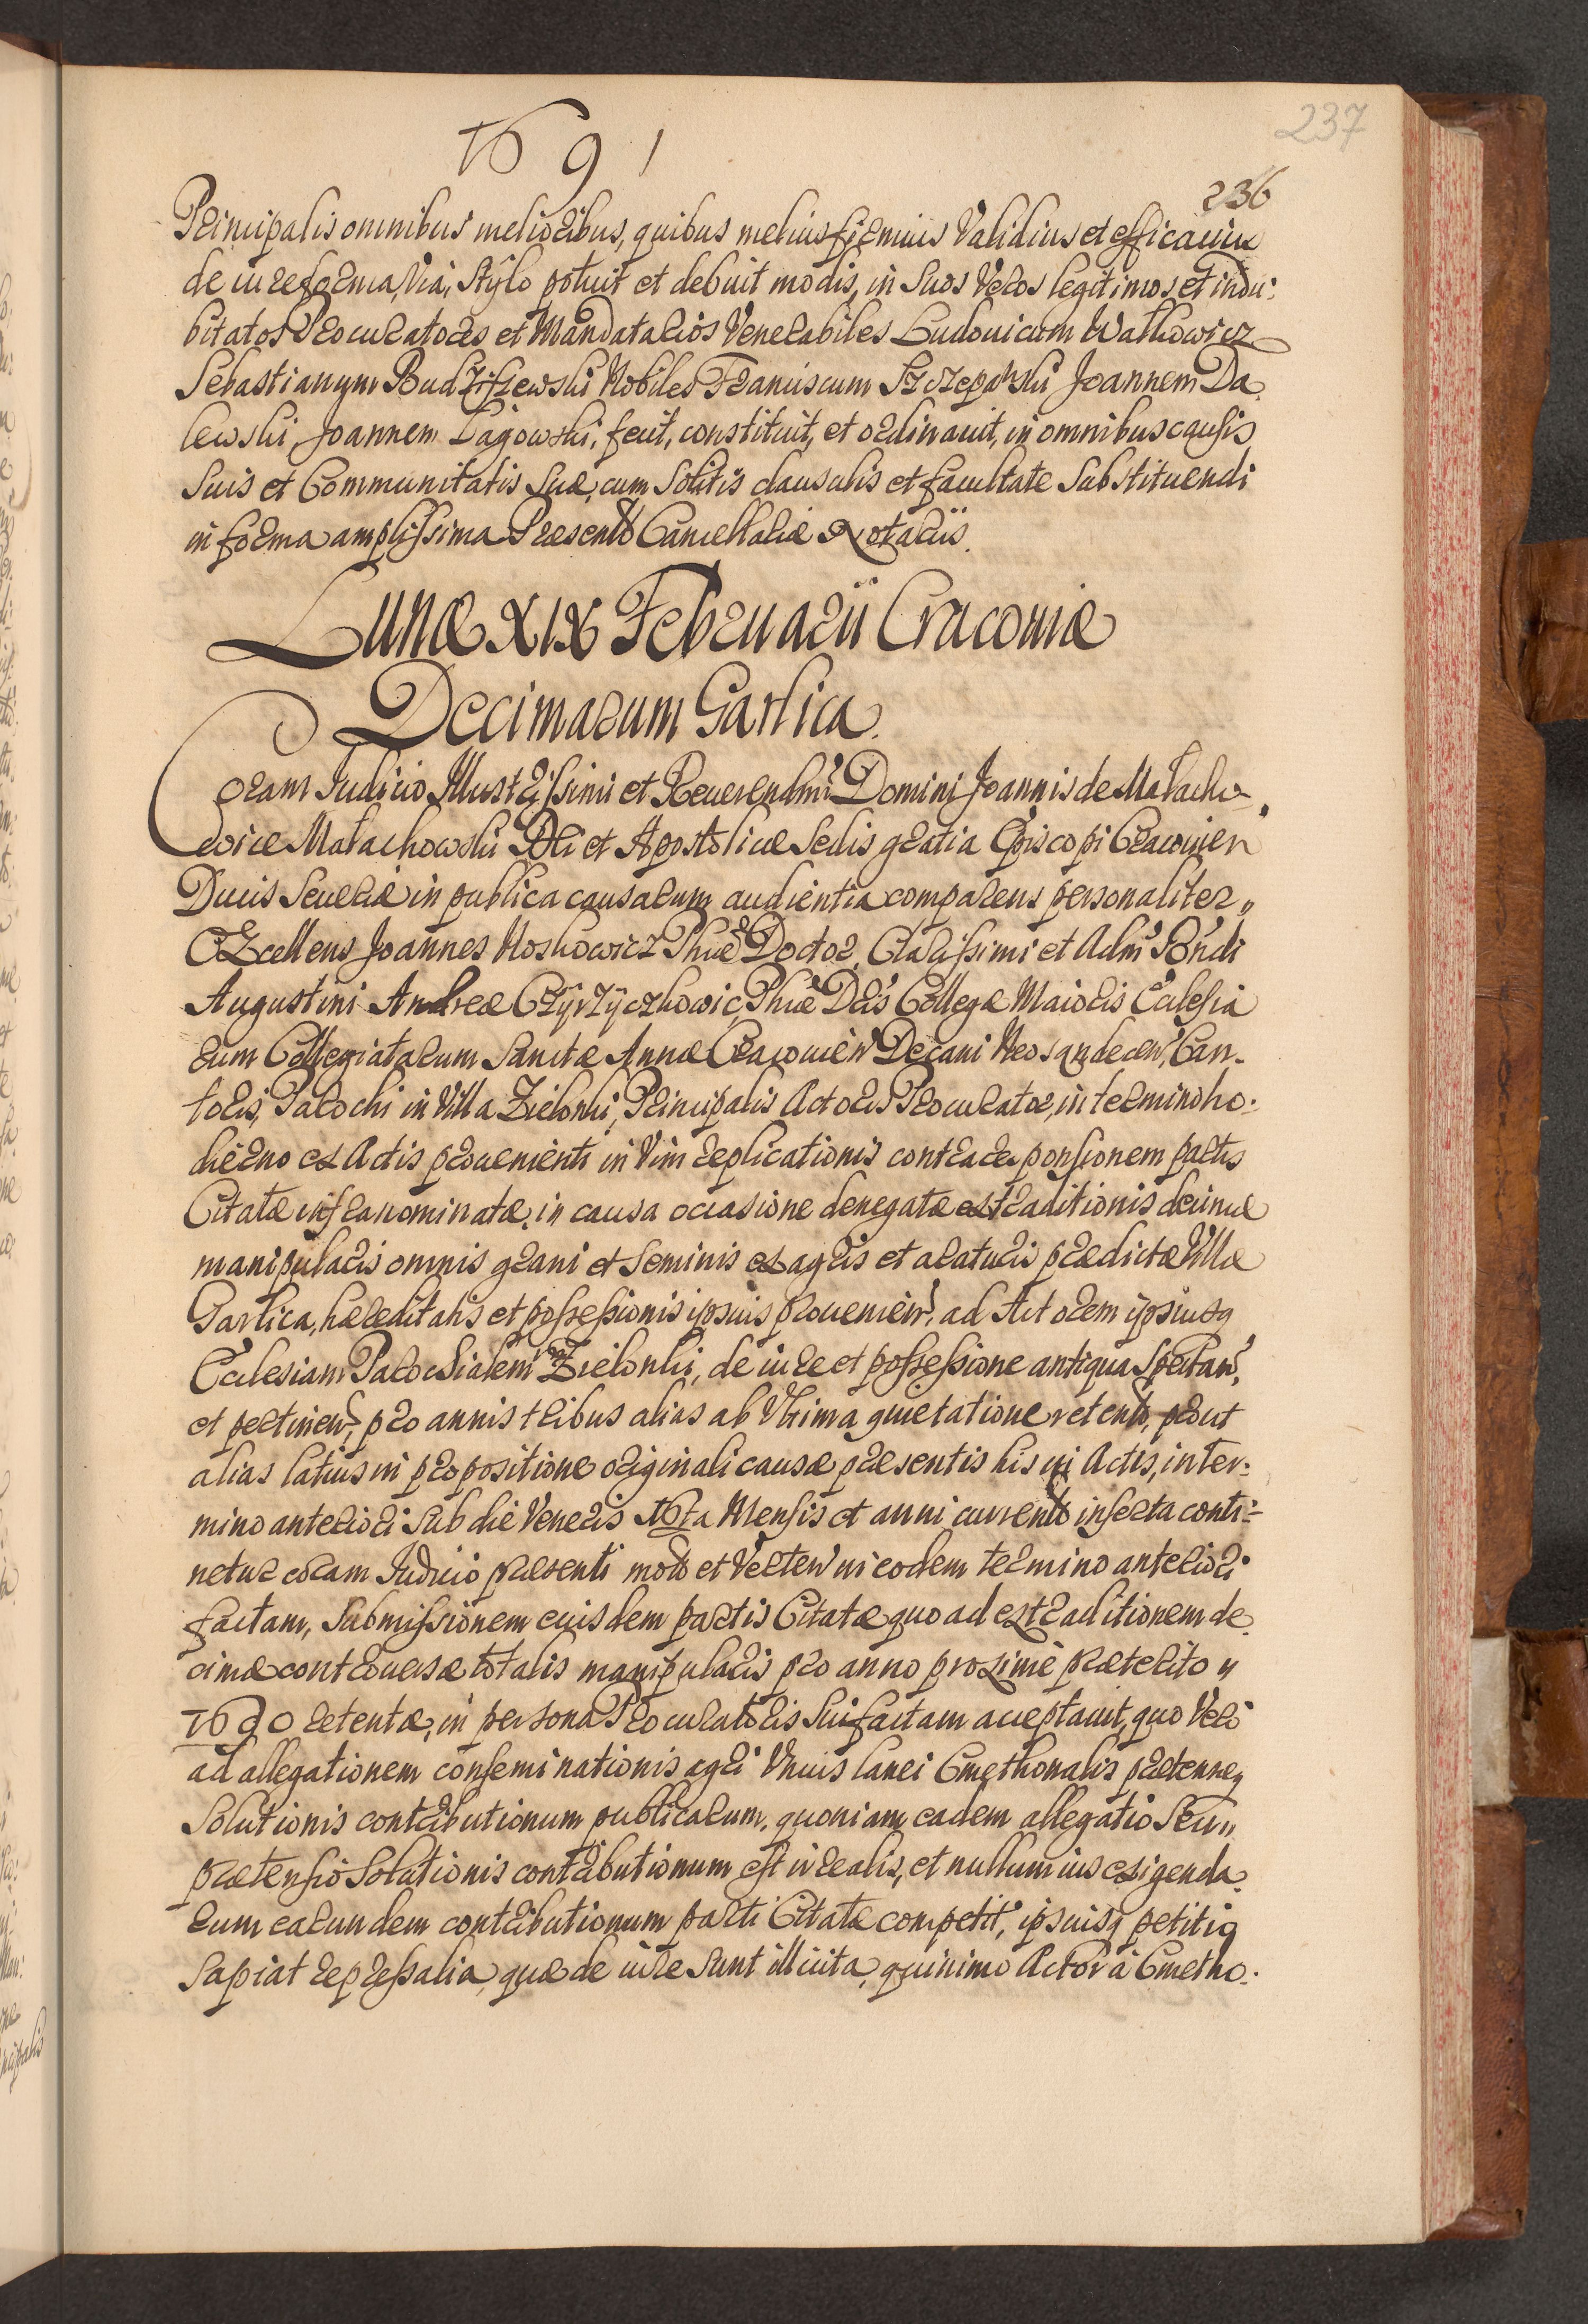 237
1691
236
Principalis omnibus melioribus, quibus melius firmius Validius et efficacius
de iure forma, Via, Stylo potuit et debuit modis, in Suos Veros legitimos et indu:
bitatos Procuratores et Mandatarios Venerabiles Ludouicum Walkowicz
Sebastianum Budziszewski Nobiles Franciscum Szczepański Joannem Da
lewski, Joannem Łagowski, fecit, constituit, et ordinauit, in omnibus causis
Suis et Communitatis Suæ, cum Solitis clausulis et facultate Substituendi
in forma amplissima Præsentib Cancellariæ Notariis.
Lunæ XIX Februarii Cracouiæ
Decimarum Garlica.
Coram Judicio Illustrissimi et Reuerendmi Domini Joannis de Małacho
wice Małachowski Dei et Apostolicæ Sedis gratia Episcopi Cracouien
Ducis Seueriæ in publica causarum audientia comparens personaliter
Excellens Joannes Koskowicz Phiæ Doctor, Clarissimi et Adm Rndi
Augustini Andreæ Czyrzyczkowic, Phiæ Dris Collegæ Maioris Ecclesia
rum Collegiatarum Sanctæ Annæ Cracouien Decani Neosandecen, Can-
toris, Parochi in Villa Zielonki, Principalis Actoris Procurator, in termino ho:
dierno ex Actis proueniente in Vim replicationis contra responsionem partis
Citatæ infranominatæ, in causa occasione denegatæ extraditionis decimæ
manipularis omnis grani et Seminis ex agris et araturis prædictæ Villæ
Garlica, hæreditatis et possessionis ipsius prouenien, ad Actorem ipsiusq
Ecclesiam Parochialem in Zielonki, de iure et possessione antiqua Spectan,
et pertinen, pro annis tribus alias ab Vltima quietatione retent, prout
alias latius in propositione originali causæ præsentis his in Actis, in ter:
mino anteriori Sub die Veneris 16ta Mensis et anni current inserta conti:
netur coram Judicio præsenti mot et Verten in eodem termino anteriori
factam, Submissionem eiusdem partis Citatæ quo ad extraditionem de
cimæ controuersæ totalis manipularis pro anno proxime præterito
1690 retentæ, in persona Procuratoris Sui factam acceptauit, quo Vero
ad allegationem conseminationis agri Vnius lanei Cmethonalis prætensæq
Solutionis contributionum publicarum, quoniam eadem allegatio Seu
prætensio Solutionis contributionum est irrealis, et nullum ius exigenda
rum earundem contributionum parti Citatæ competit, ipsiusq petitio
Sapiat repressalia, quæ de iure Sunt illicita, quinimo Actor a Cmetho: